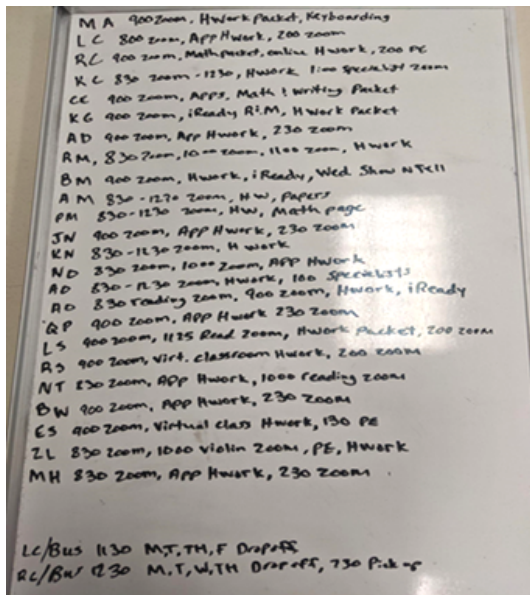 MA 900 Zoom, Hwork Packet, Keyboarding
LC 800 Zoom, App Hwork, 200 Zoom
RC 900 Zoom, Math packet, online Hwork, 200 PE
KC 830 Zoom-1230, Hwork 1:00 Specialist Zoom
CC 900 Zoom, Apps, Math & Writing Packet
KG 900 Zoom, iReady R&M, Hwork Packet
AD 900 Zoom, App Hwork, 230 Zoom
RM, 830 Zoom, 1000 Zoom, 1100 Zoom, Hwork
BM 900 Zoom, Hwork, iReady, Wed. Show NTell
AM 830-1230 Zoom, HW, Papers
PM 830-1230 Zoom, HW, Math page
JN 900 Zoom, App Hwork, 230 Zoom
KN 830-1230 Zoom, Hwork
ND 830 Zoom, 1000 Zoom, App Hwork
AO 830-1230 Zoom, Hwork, 100 Specialists
AO 830 reading Zoom, 900 Zoom, Hwork, iReady
QP 900 Zoom, App Hwork 230 Zoom
LS 900 Zoom, 1125 Read Zoom, Hwork Packet, 200 Zoom
RS 900 Zoom, Virt. Classroom Hwork, 200 Zoom
NT 830 Zoom, App Hwork, 1000 reading Zoom
BW 900 Zoom, App Hwork, 230 Zoom
ES 900 Zoom, Virtual Class Hwork, 130 PE
ZL 830 Zoom, 1000 violin Zoom, PE, Hwork
MH 830 Zoom, App Hwork, 230 Zoom
LC/Bus 1130 M,T,TH,F Dropoff
RC/Bus 1230 M,T,W,TH Dropoff, 730 Pick up